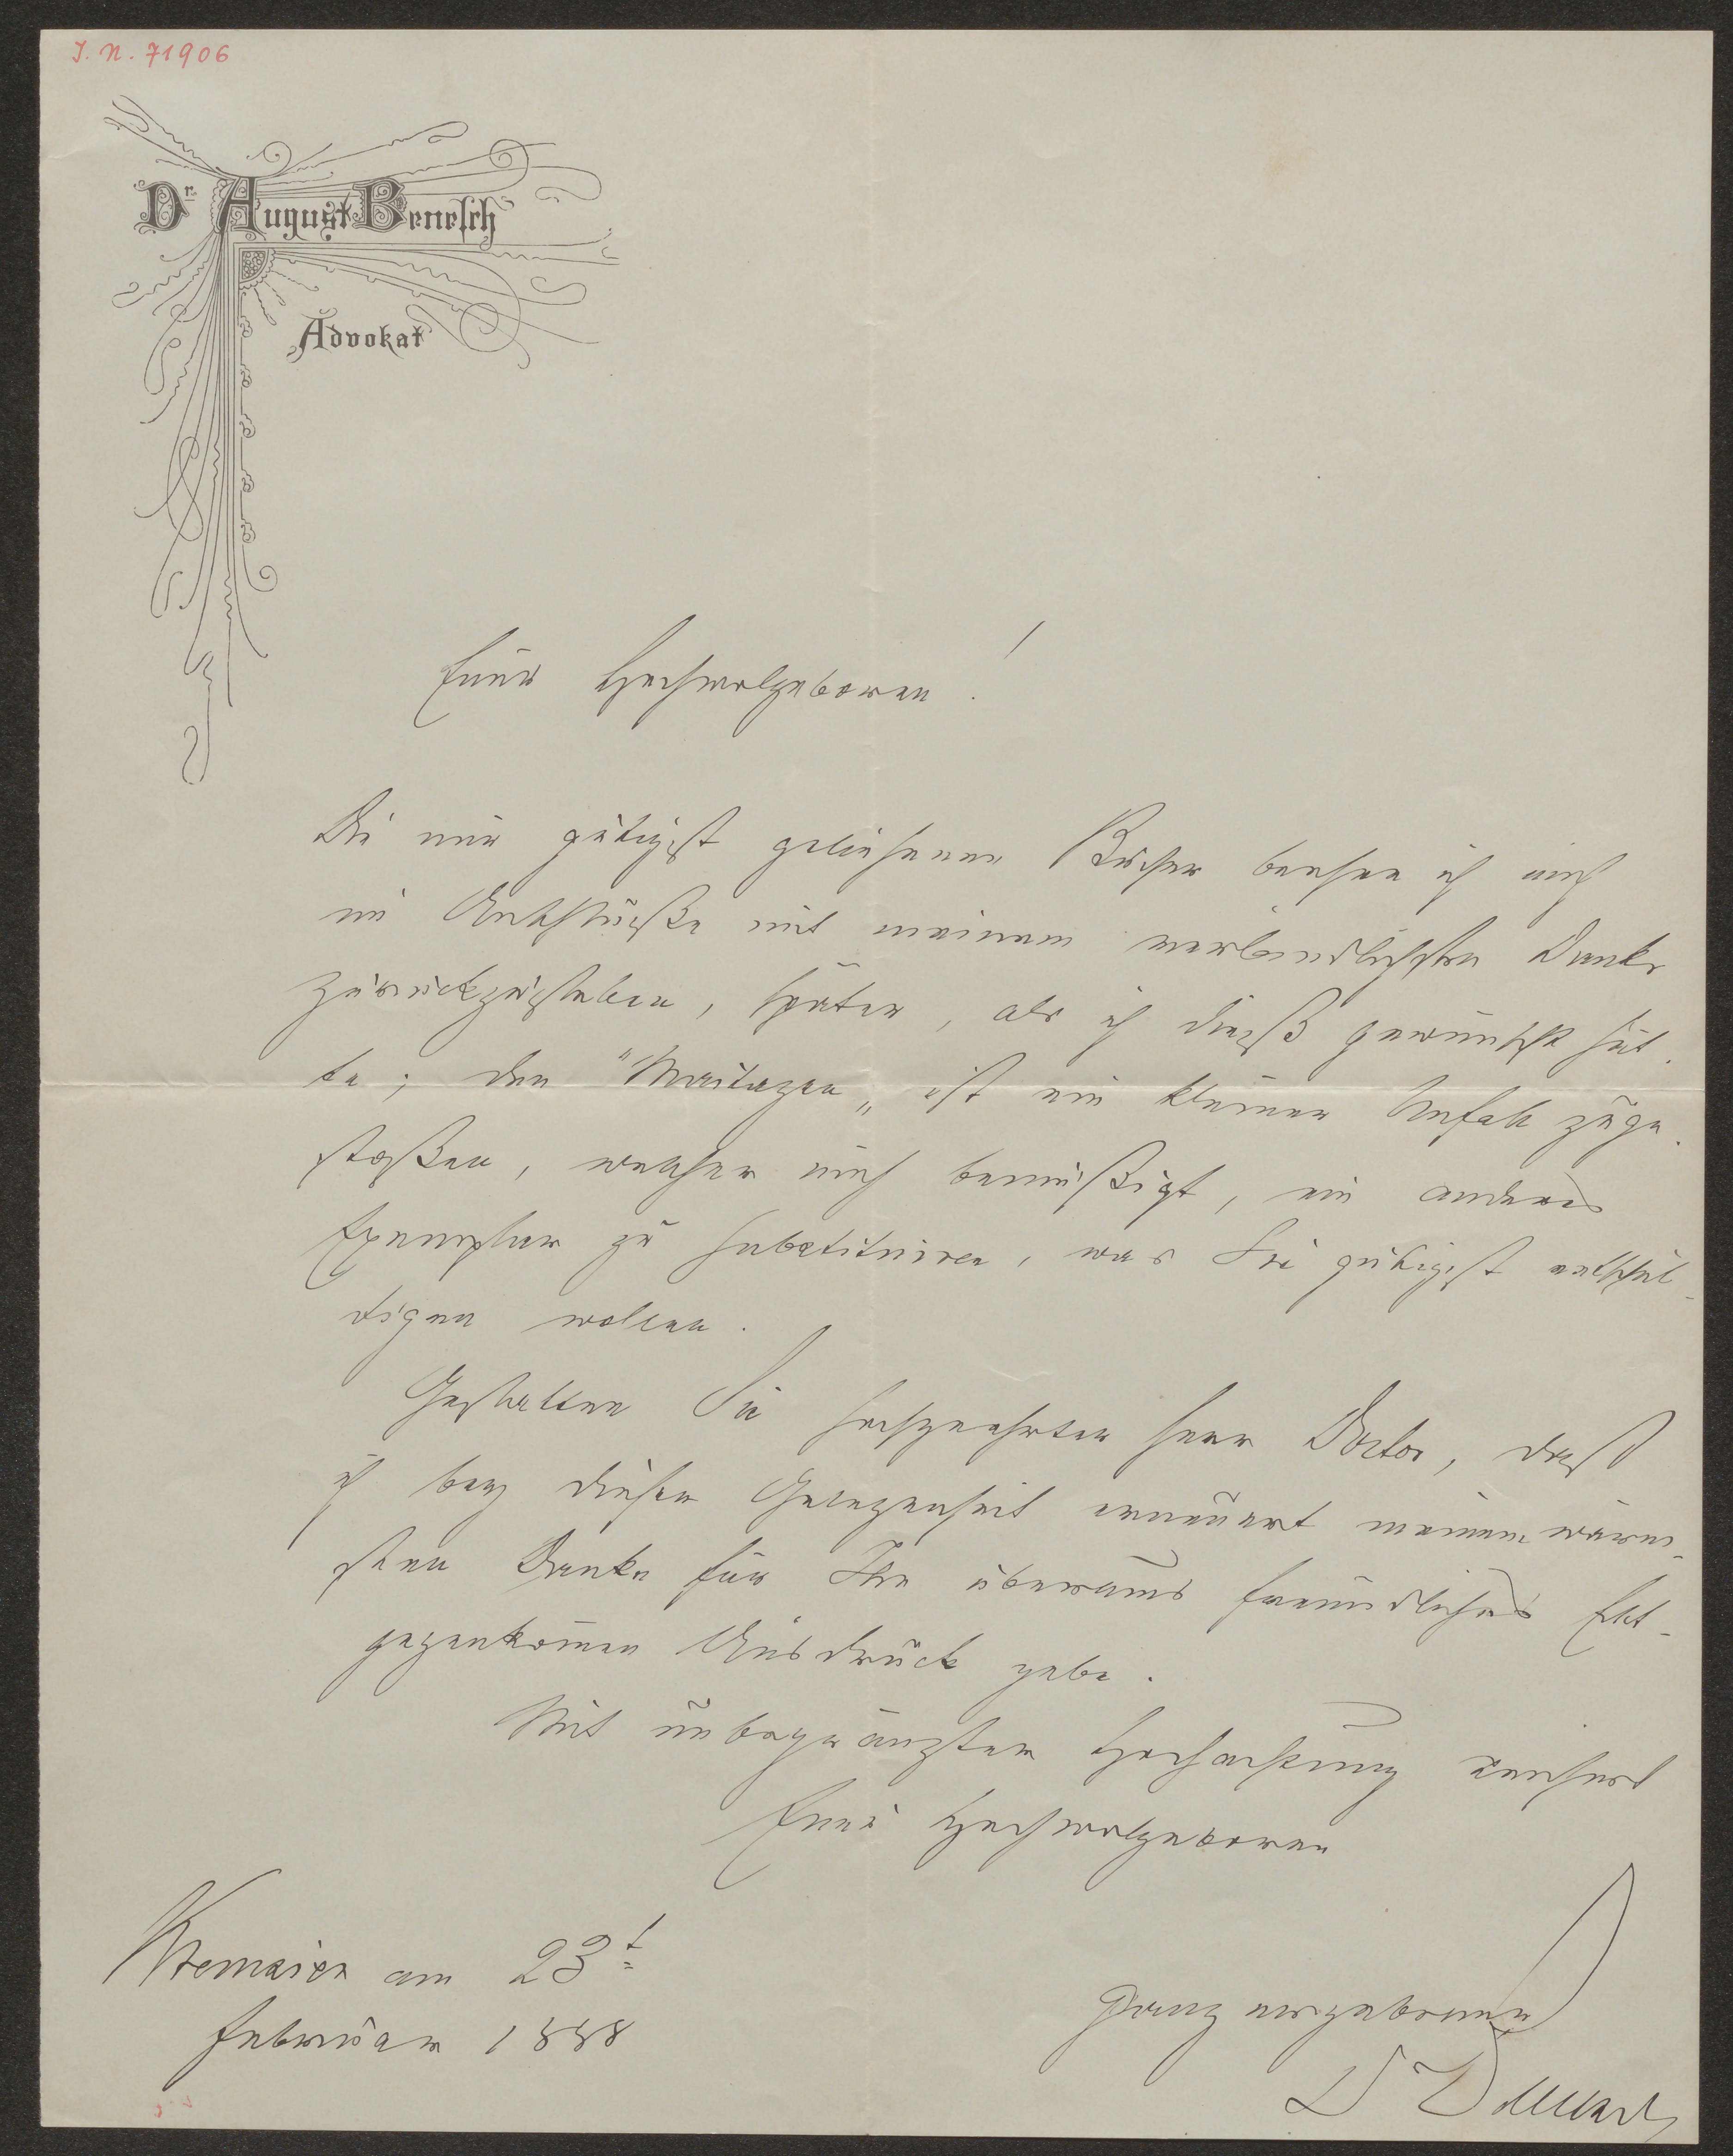 I. N. 71906
Dr. August Benesch
Advokat
Euer Hochwolgeboren!
Die mir gütigst geliehenen Bücher beehre ich mich
im Anschluße mit meinem verbindlichsten Danke
zurückzustellen, später, als ich dieß gewünscht hät-
te; den "Maitagen" ist ein kleiner Unfall zuge-
stoßen, welcher mich bemüßigt, ein anderes
Exemplar zu substituiren, was Sie gütigst entschul-
digen wollen.
Gestatten Sie hochgeehrter Herr Doctor, daß
ich bey dieser Gelegenheit erneuert meinem wärm-
sten Danke für Ihr überaus freundliches Ent-
gegenkommen Ausdruck gebe.
Mit unbegränzter Hochachtung zeichnet
Euer Hochwolgeboren
am 23t
Februar 1888
ganz ergebener
Dr